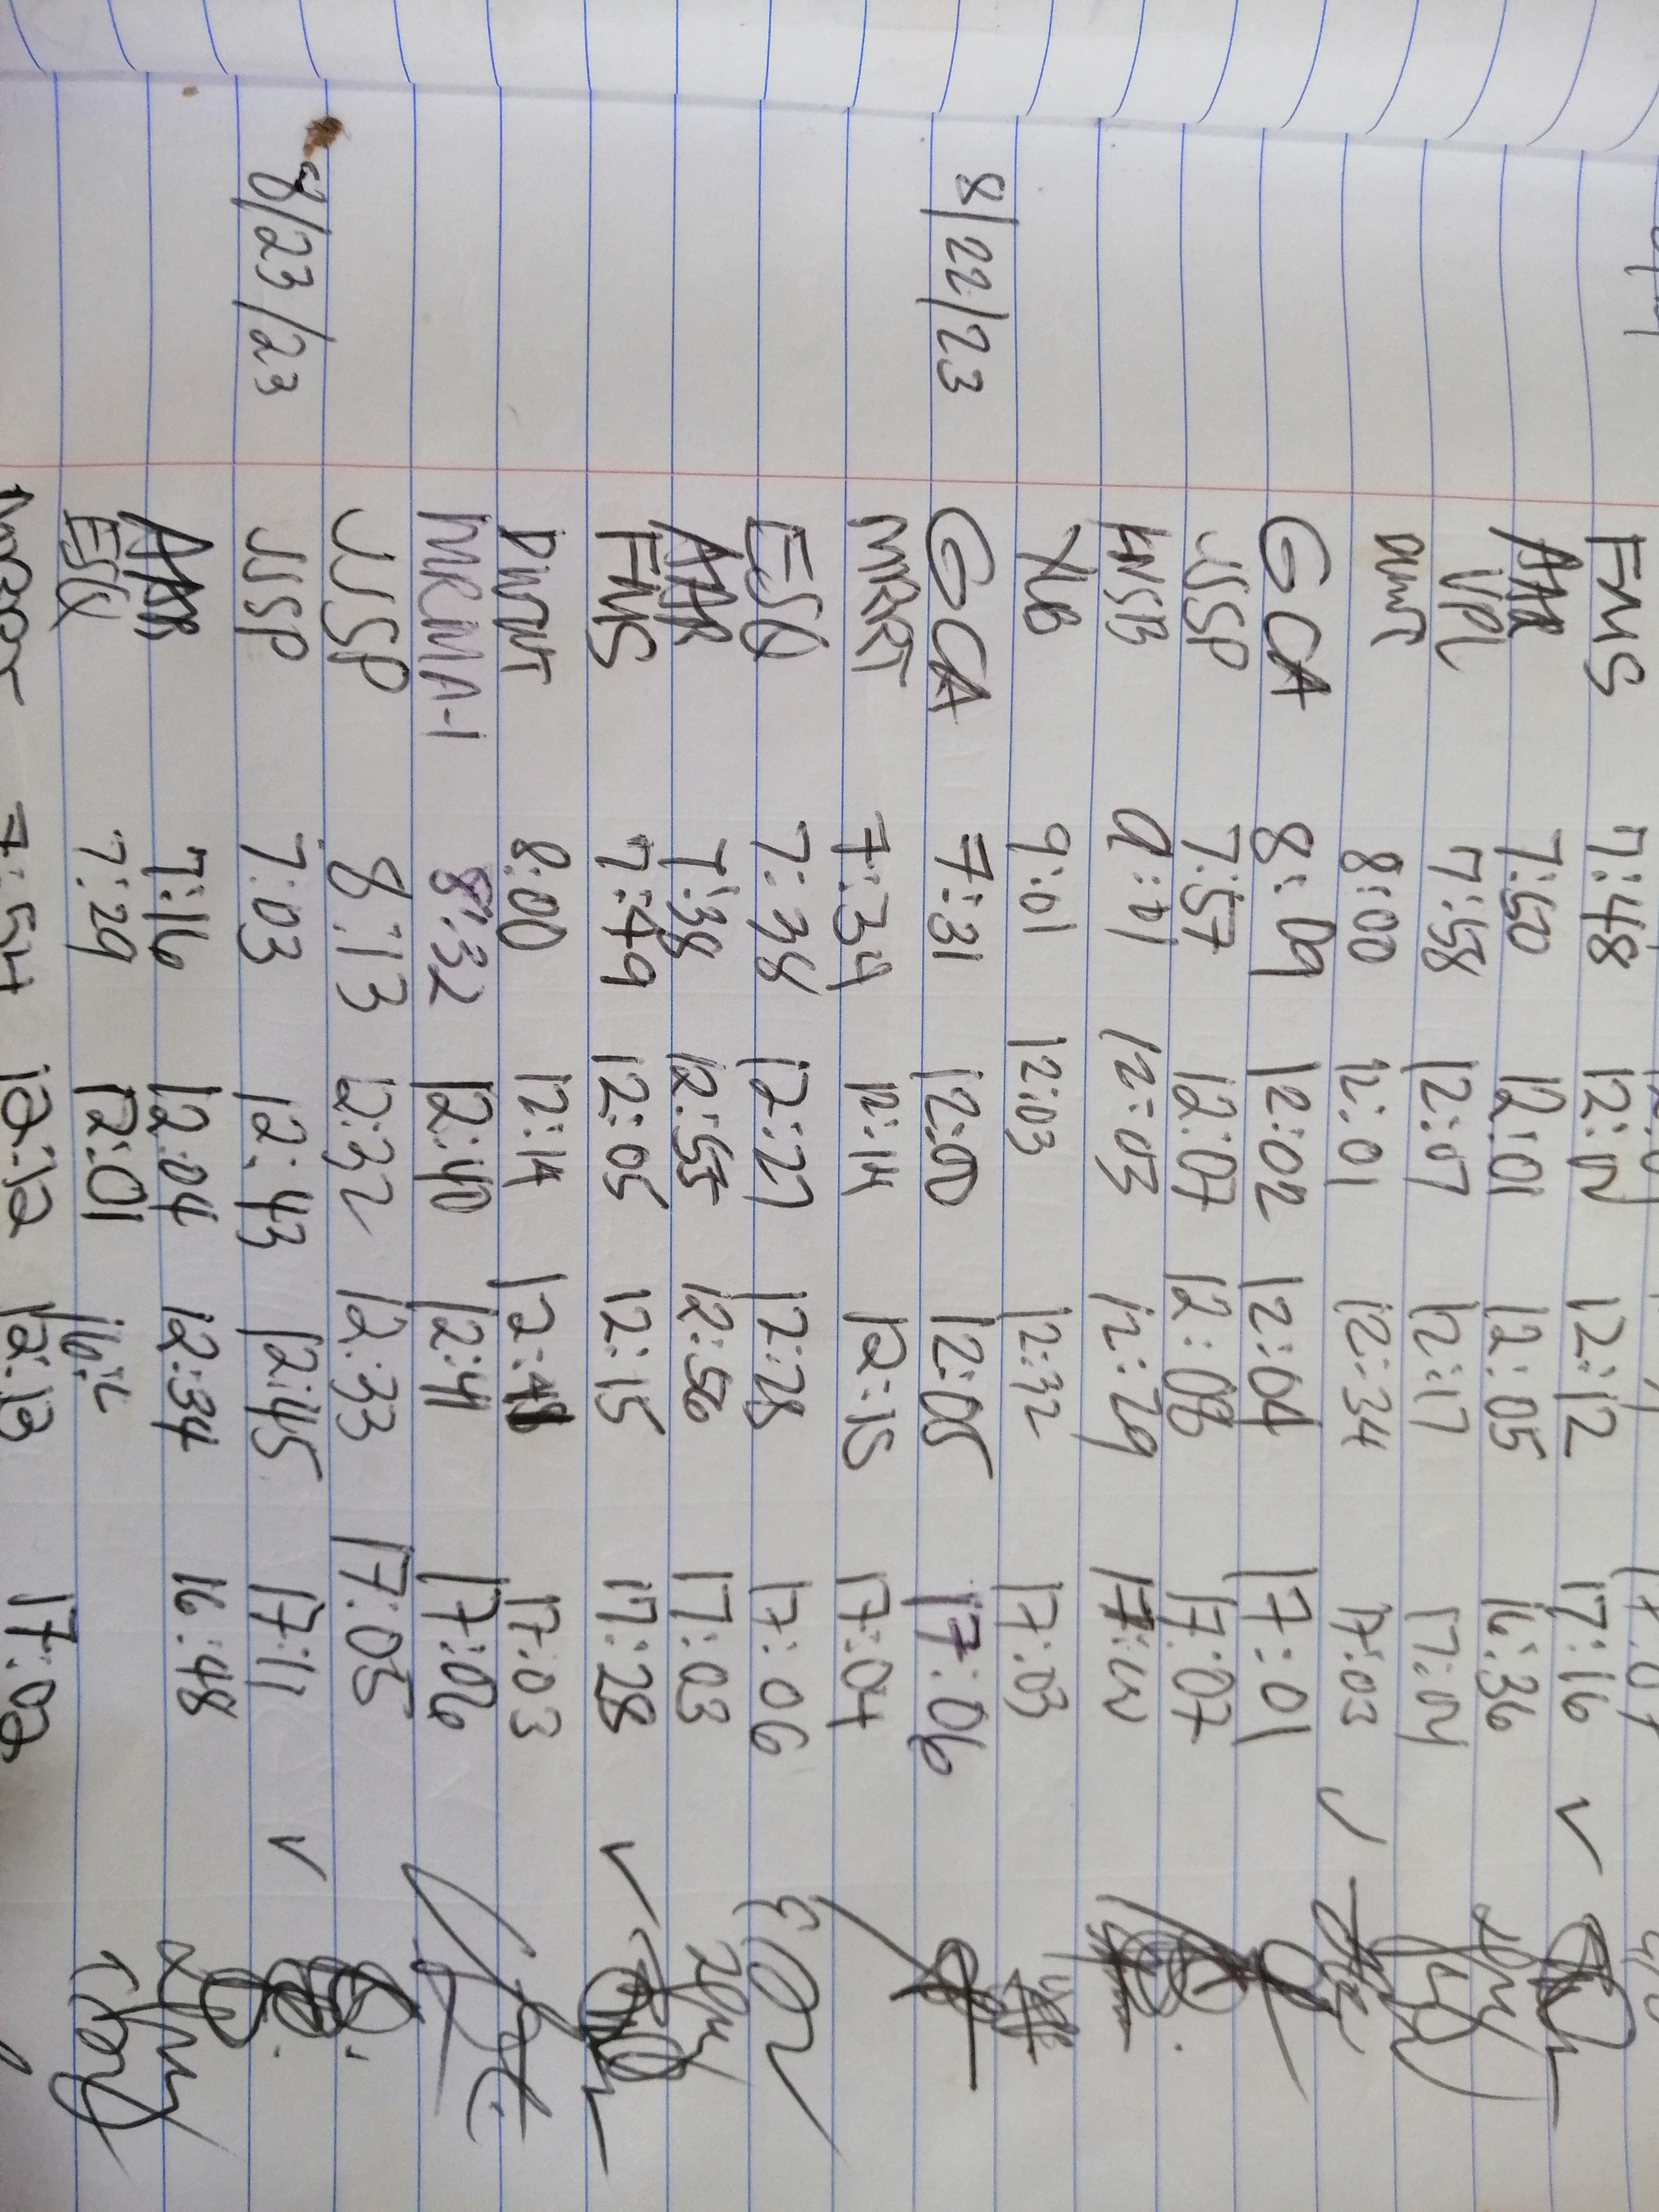 FMS 7:48 12:12 17:16 ✓
AAR 7:50 12:01 12:05 16:36
VPL 7:58 12:07 12:17 17:04
DWNT 8:00 12:01 12:34 17:03
GCA 8:09 12:02 12:04 17:01 ✓
JJSP 7:57 12:07 12:08 17:07
9:01 12:03 12:29
XLB 9:01 12:03 12:32 17:03
8/22/23 GCA 7:31 12:00 12:05 17:06
MRRT 7:34 12:14 12:15 17:04
ESQ 7:38 12:27 12:28 17:06
AAR 7:38 12:55 12:56 17:03
FMS 7:49 12:05 12:15 17:28 ✓
DWNT 8:00 12:14 17:03
MRMA-1 8:32 12:40 12:41 17:06
JJSP 8:13 12:32 12:33 17:05
8/23/23 JJSP 7:03 12:43 12:45 17:11 ✓
AAR 7:16 12:04 12:34 16:48
ESQ 7:29 12:01
7:54 12:12 12:13 17:02